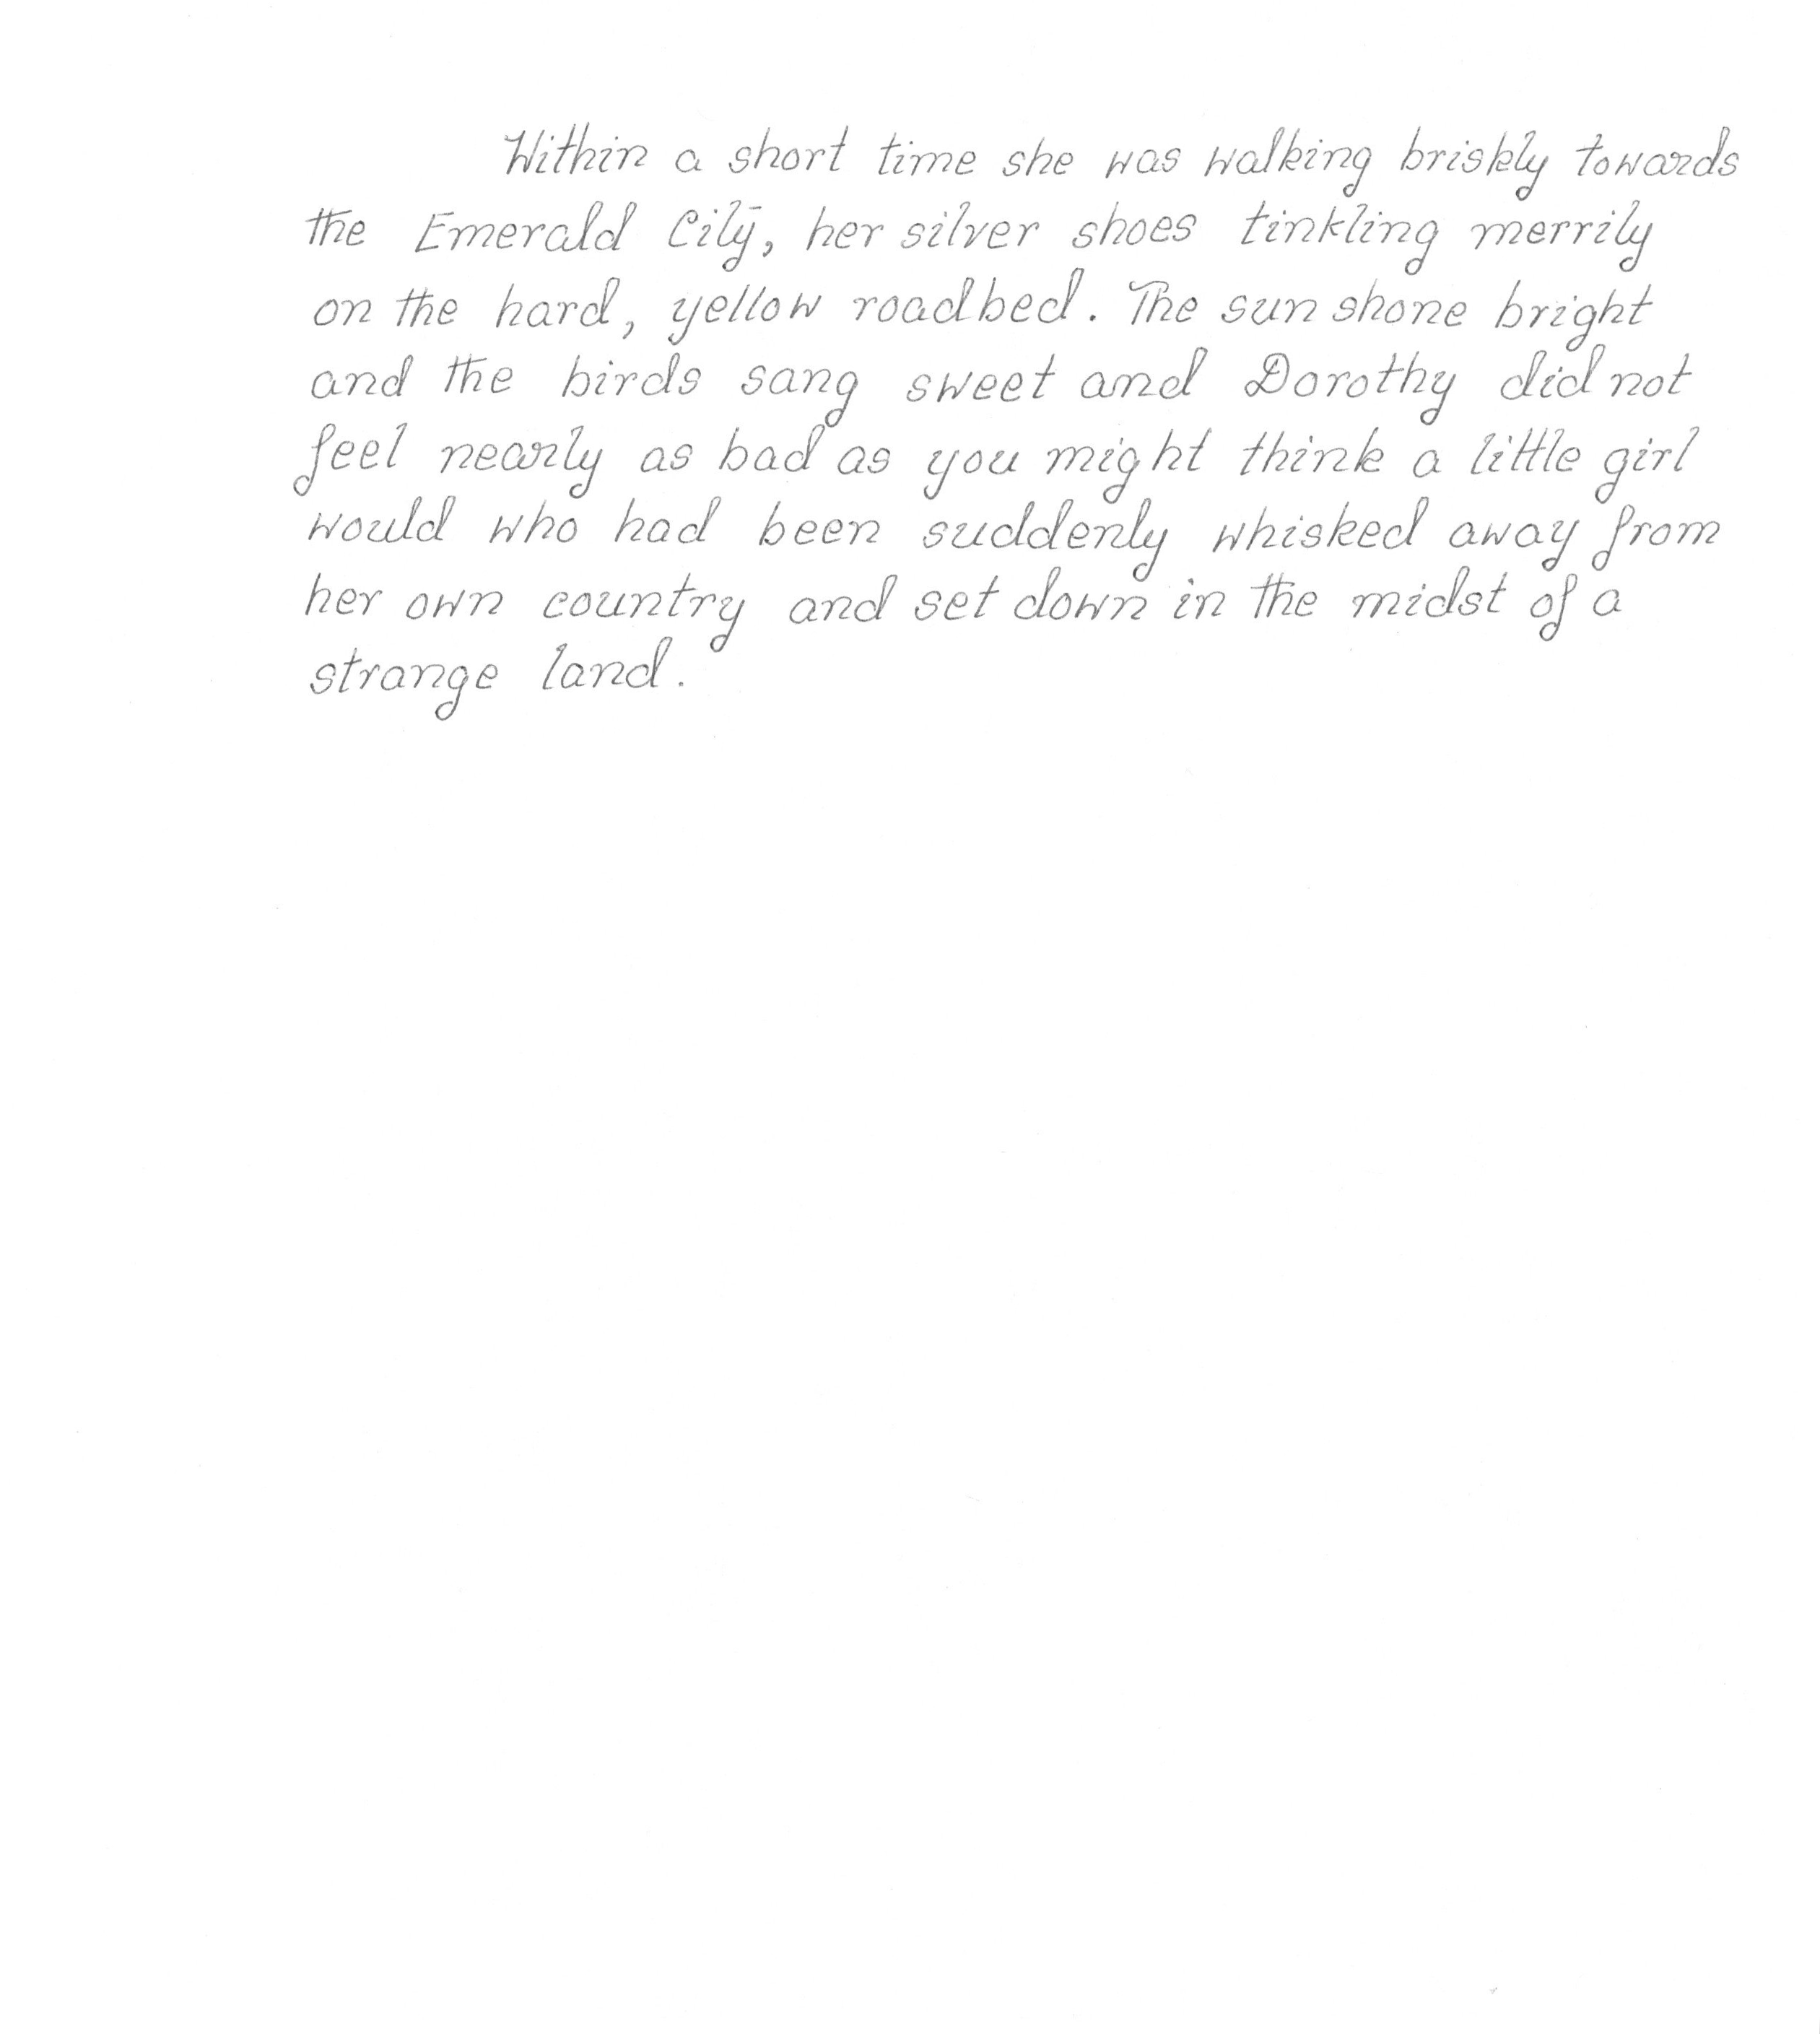 Within a short time she was walking briskly towards
the Emerald City, her silver shoes tinkling merrily
on the hard, yellow roadbed. The sun shone bright
and the birds sang sweet and Dorothy did not
feel nearly as bad as you might think a little girl
would who had been suddenly whisked away from
her own country and set down in the midst of a
strange land.